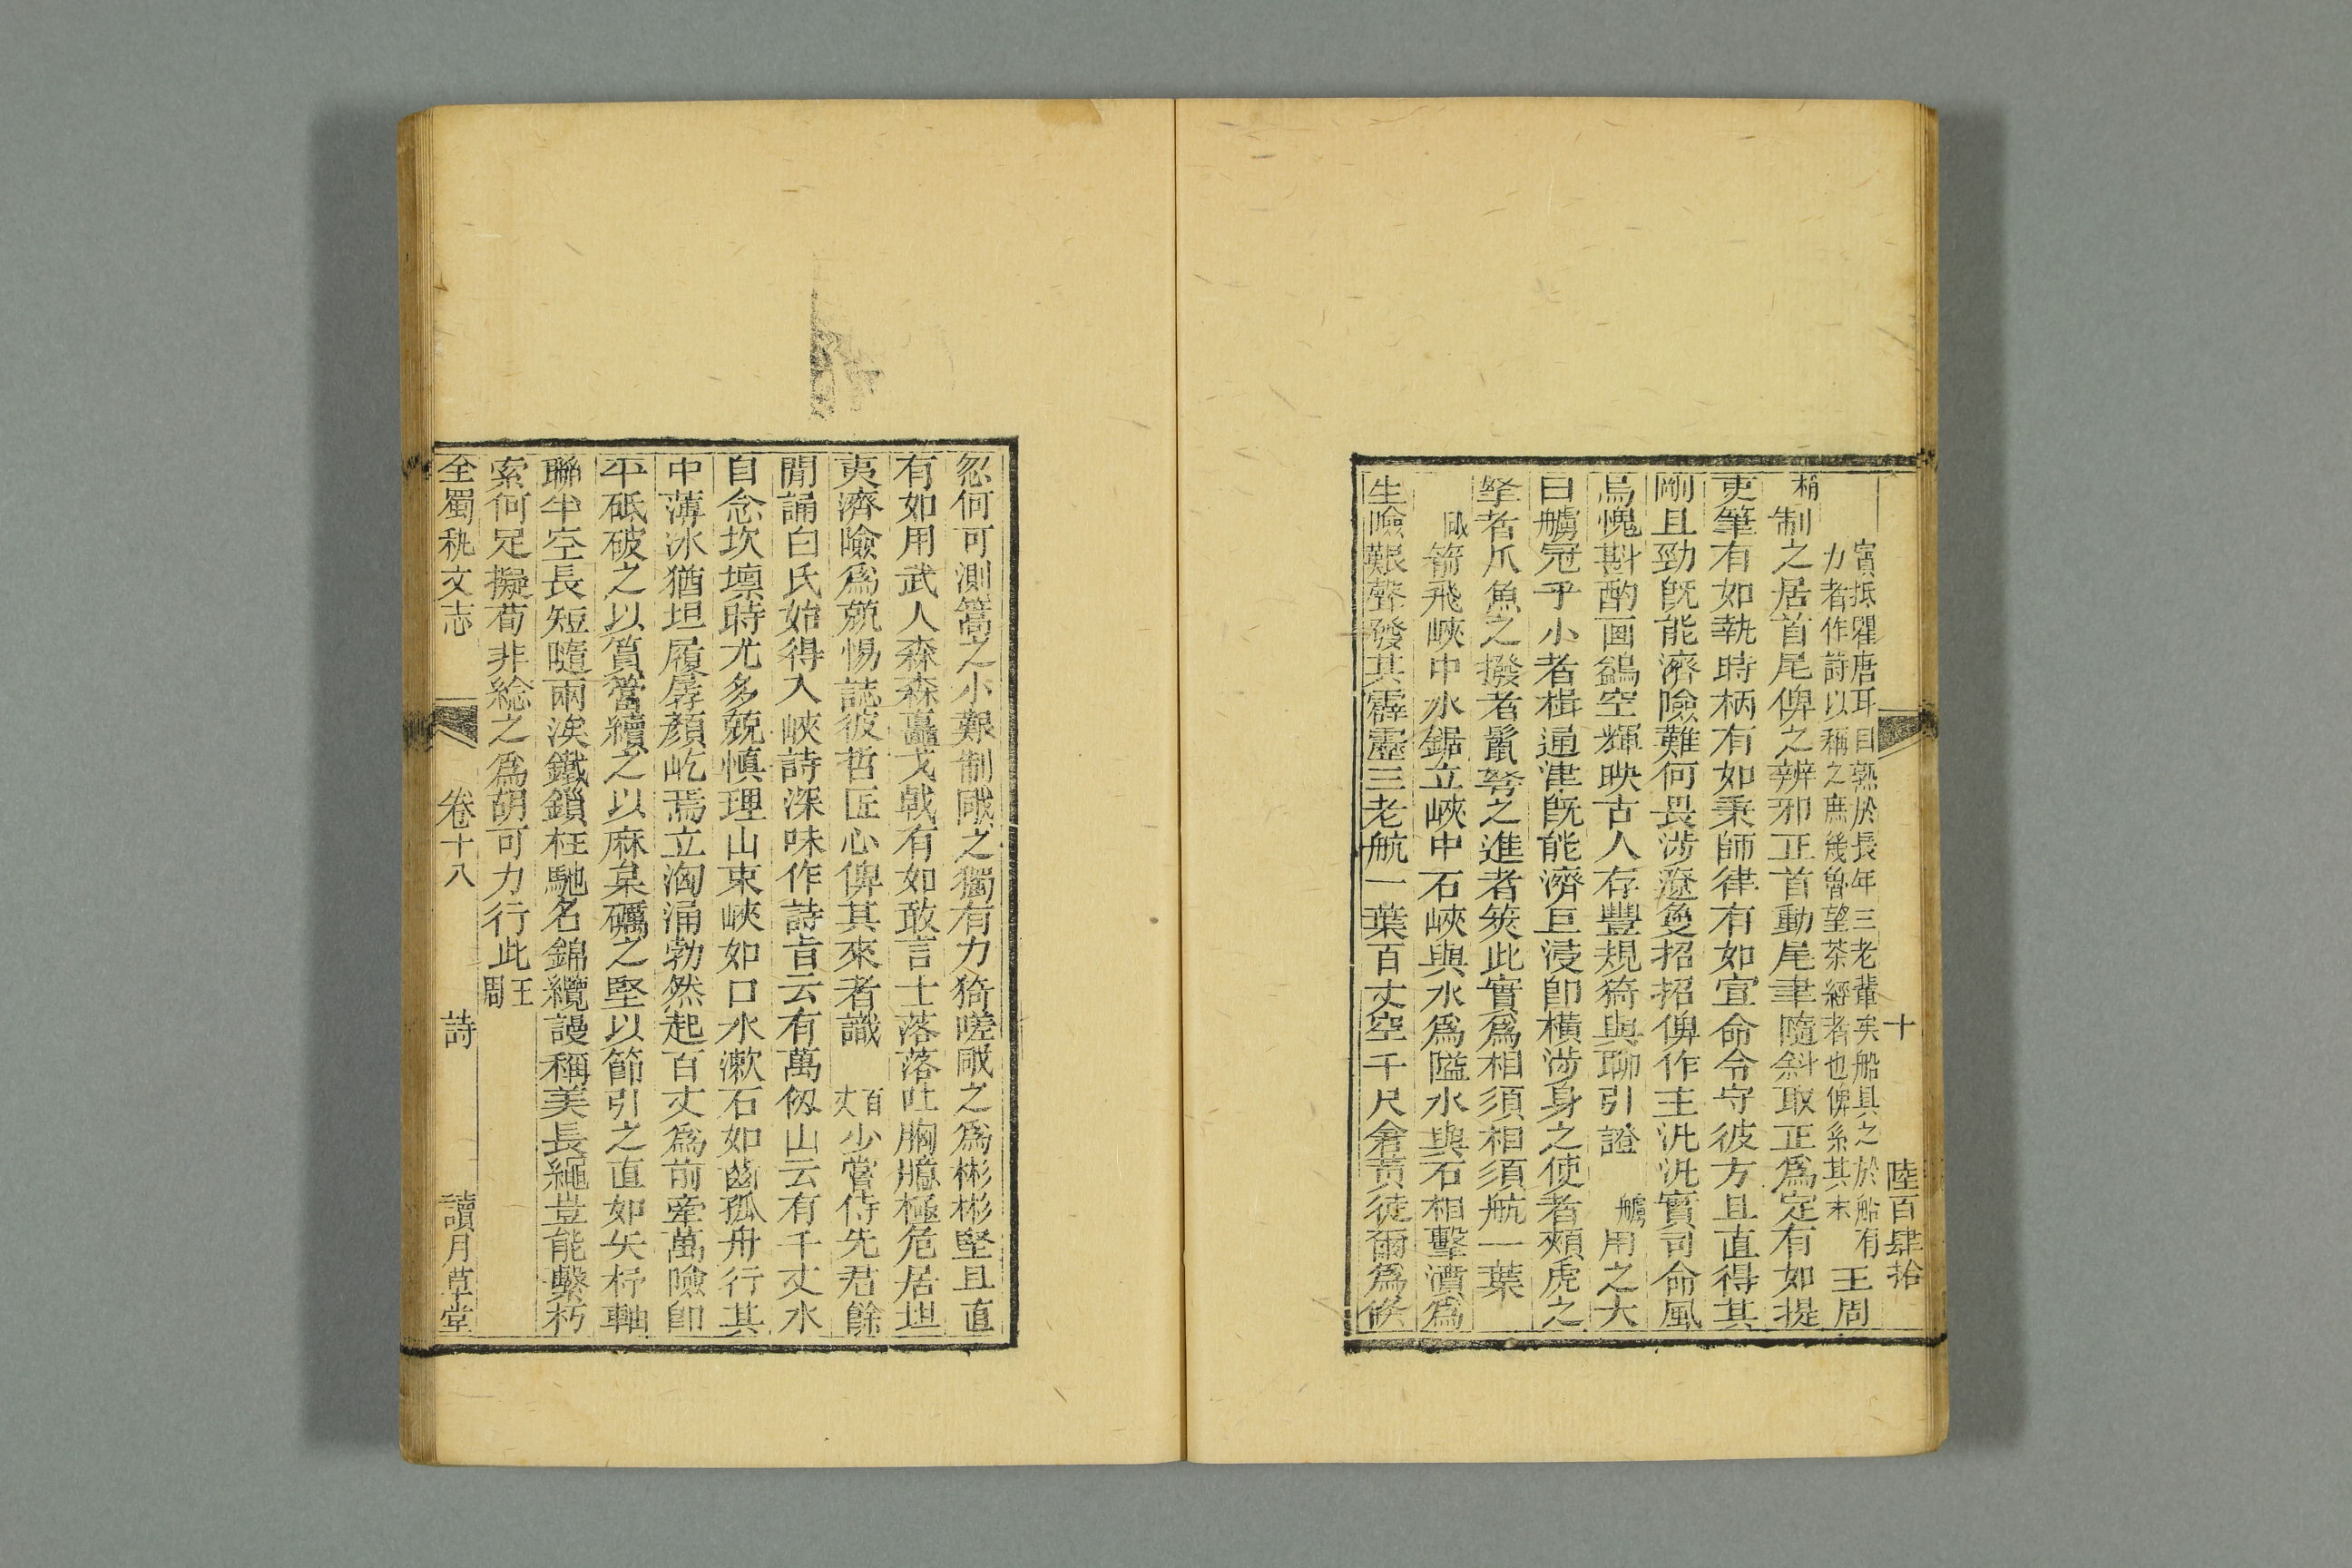 十　陸百肆拾
賓抵瞿唐耳目熟於長年三老輩矣船具之於船有
力者作詩以稱之庶幾魯望茶經者也俾系其末　王周
梢制之居首尾俾之辨邪正首動尾聿隨斜取正爲定有如提
吏筆有如執時柄有如秉師律有如宣命令守彼方且直得其
剛且勁旣能濟險難何畏涉遼敻招招俾作主汎汎實司命風
烏愧斟酌畫鷁空輝映古人存豐規猗與聊引證　艣用之大
曰艣冠乎小者楫通津旣能濟巨浸卽橫涉身之使者頰虎之
拏者爪魚之撥者鬣弩之進者筴此實爲相須相須航一葉
𢧕箭飛峽中水鋸立峽中石峽與水爲隘水與石相擊濆爲
生險艱聲發其霹靂三老航一葉百丈空千尺倉黃徒爾爲倏
忽何可測篙之小難制𢧕之獨有力猗嗟𢧕之爲彬彬堅且直
有如用武人森森矗戈戟有如敢言士落落吐胸臆極危居坦
夷濟險爲兢惕誌彼哲匠心俾其來者識　百丈少嘗侍先君餘
閒誦白氏始得入峽詩深味作詩旨云有萬仞山云有千丈水
自念坎壈時尤多兢愼理山束峽如口水漱石如齒孤舟行其
中薄冰猶坦履孱顏屹焉立洶涌勃然起百丈爲前牽萬險卽
平砥破之以篔簹續之以麻枲礪之堅以節引之直如矢杼軸
聯半空長短隨兩涘鐵鎖枉馳名錦纜謾稱美長繩豈能繫朽
索何足擬苟非綜之爲胡可力行此　王周
全蜀秇文志　卷十八　詩　讀月草堂